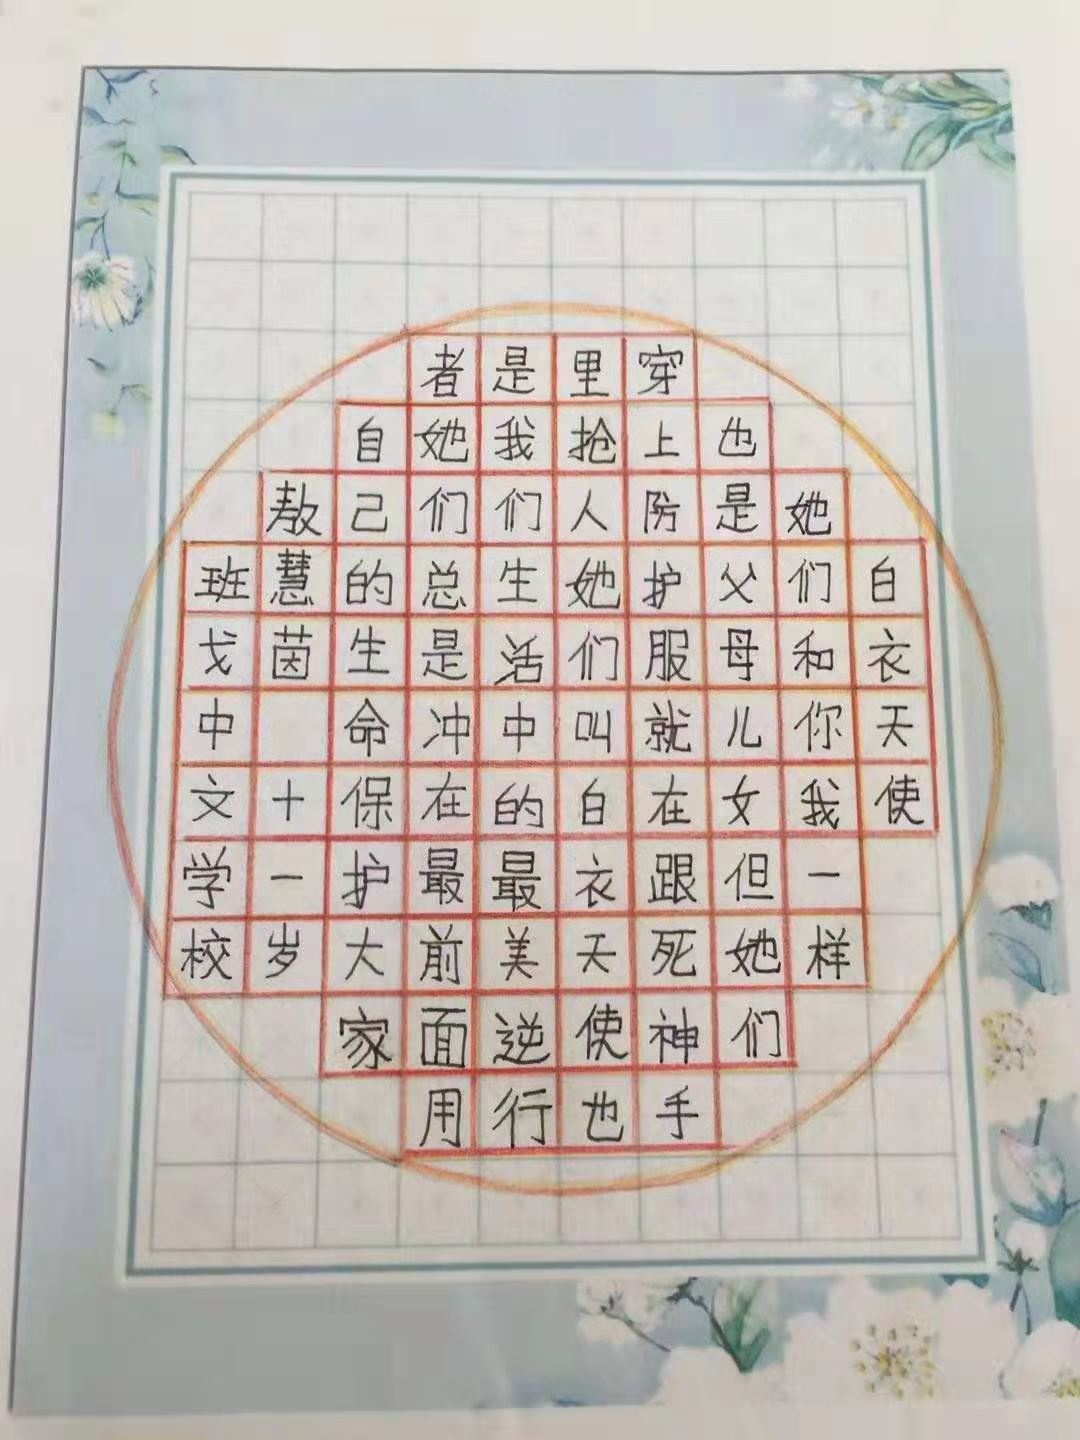 白衣天使
她们和你我一样
也是父母儿女但她们
穿上防护服就在跟死神手
里抢人她们叫白衣天使也
是我们生活中的最美逆行
者她们总是冲在最前面用
自己的生命保护大家
敖慧茵 十一岁
班戈中文学校